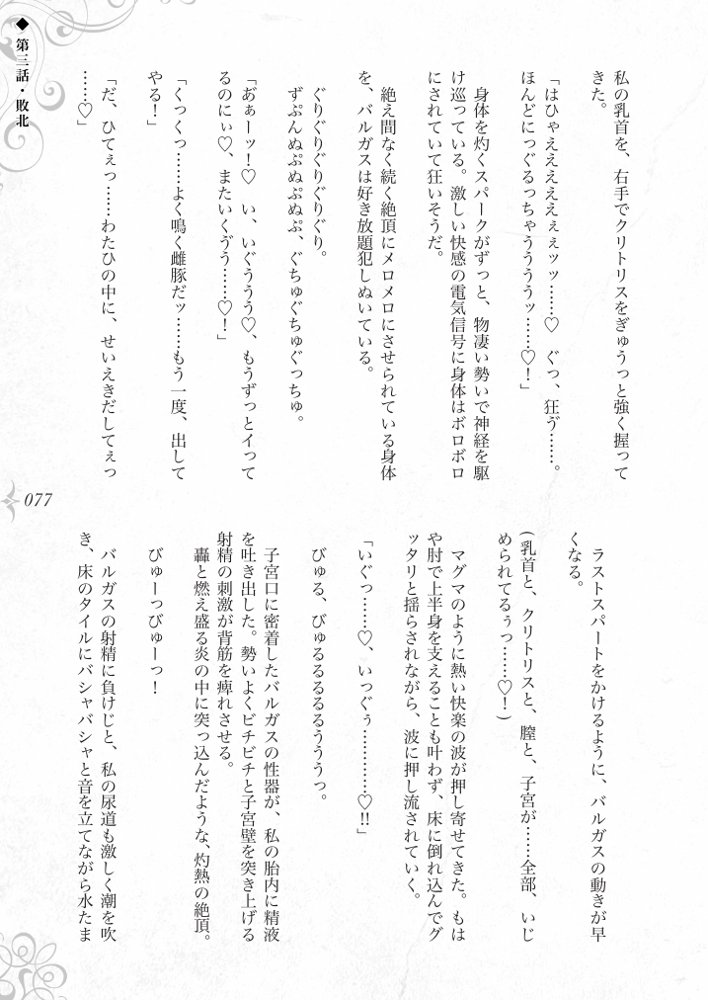 ◆ 第三話・敗北
私の乳首を、右手でクリトリスをぎゅうっと強く握って
きた。
「はひゃええええぇぇッッ……♡ ぐっ、狂ゔ……。
ほんどにっぐるっちゃううううッ……♡！」
身体を灼くスパークがずっと、物凄い勢いで神経を駆
け巡っている。激しい快感の電気信号に身体はボロボロ
にされていて狂いそうだ。
絶え間なく続く絶頂にメロメロにさせられている身体
を、バルガスは好き放題犯しぬいている。
ぐりぐりぐりぐりぐり。
ずぷんぬぷぬぷぬぷ、ぐちゅぐちゅぐっちゅ。
「あ゙ぁーッ！♡ い、いぐううう♡、もうずっとイって
るのにぃ♡、またいくゔう……♡！」
「くっくっ……よく鳴く雌豚だッ……もう一度、出して
やる！」
「だ、ひてぇっ……わたひの中に、せいえきだしてぇっ
……♡」
ラストスパートをかけるように、バルガスの動きが早
くなる。
(乳首と、クリトリスと、膣と、子宮が……全部、いじ
められてるぅっ……♡！)
マグマのように熱い快楽の波が押し寄せてきた。もは
や肘で上半身を支えることも叶わず、床に倒れ込んでグ
ッタリと揺らされながら、波に押し流されていく。
「いぐっ……♡、いっぐぅ…………♡!!」
びゅる、びゅるるるるるうううっ。
子宮口に密着したバルガスの性器が、私の胎内に精液
を吐き出した。勢いよくビチビチと子宮壁を突き上げる
射精の刺激が背筋を痺れさせる。
轟と燃え盛る炎の中に突っ込んだような、灼熱の絶頂。
びゅーっびゅーっ！
バルガスの射精に負けじと、私の尿道も激しく潮を吹
き、床のタイルにバシャバシャと音を立てながら水たま
077